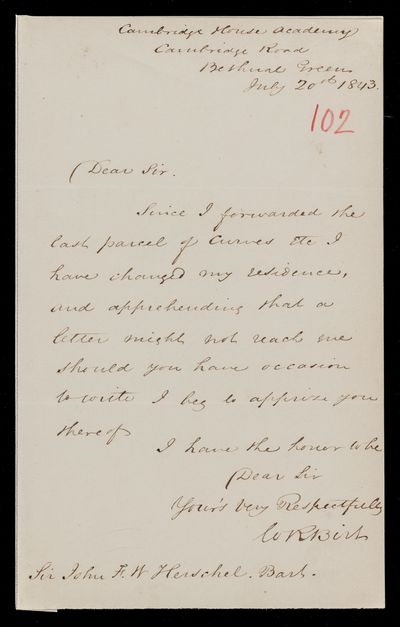 Cambridge House Academy
Cambridge Road
Bethnal Green
July 20th 1843.
102
Dear Sir.
Since I forwarded the
last parcel of Curves etc I
have changed my residence,
and apprehending that a
letter might not reach me
should you have occasion
to write I beg to apprize you
thereof
I have the honor to be
Dear Sir
Your's very Respectfully
W R Birt
Sir John F. W Herschel. Bart.